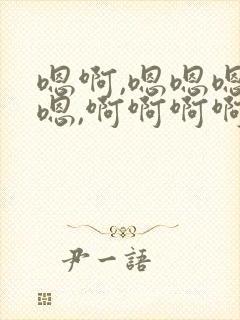 嗯啊,嗯嗯嗯
嗯,啊啊啊啊
尹一語